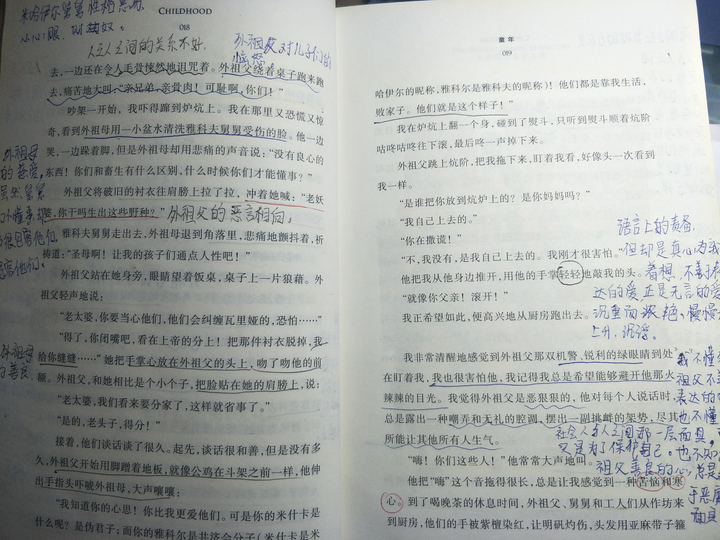 CHILDHOOD
018
人与人之间的关系不好.
外祖父对儿子们的
去,一边还在令人毛骨悚然地诅咒着。外祖父绕着桌子跑来跑
去,痛苦地大叫:“亲兄弟,亲骨肉!可耻啊,你们!”
吵架一开始,我吓得蹿到炉炕上。我在那里又恐慌又惊
奇,看到外祖母用一小盆水清洗雅科夫舅舅受伤的脸。他一边
哭,一边跺着脚,但是外祖母却用悲痛的声音说:“没有良心的
东西!你们和畜生有什么区别,什么时候你们才能懂事?”
外祖父将破旧的衬衣往肩膀上拉了拉,冲着她喊:“老妖
婆,你干吗生出这些野种?”
外祖父的恶言相向;
外祖母
的慈爱,
雅科夫舅舅走出去,外祖母退到角落里,悲痛地颤抖着,祈
祷道:“圣母啊!让我的孩子们通点人性吧!”
外祖父站在她身旁,眼睛望着饭桌,桌子上一片狼藉。外
祖父轻声地说:
“老太婆,你要当心他们,他们会纠缠瓦里娅的,恐怕……”
“得了,你闭嘴吧,看在上帝的分上!把那件衬衣脱掉,我
给你缝缝……”她把手掌心放在外祖父的头上,吻了吻他的前
额。外祖父,和她相比是个小个子,把脸贴在她的肩膀上,说:
外祖母
的善良
“老太婆,我们看来要分家了,这样就省事了。”
“是的,老头子,得分!”
接着,他们谈话谈了很久。起先,谈话很和善,但是没有多
久,外祖父开始用脚蹭着地板,就像公鸡在斗架之前一样,他伸
出手指头吓唬外祖母,大声嚷嚷:
“我知道你的心思!你比我更爱他们。可是你的米什卡是
什么呢?是伪君子;而你的雅科是共济会分子(米什卡是米
童年
019
哈伊尔的昵称,雅科尔是雅科夫的昵称)!他们都是靠我生活,
败家子。他们就是这个样子!”
我在炉炕上翻一个身,碰到了熨斗,只听到熨斗顺着炕阶
咕咚咕咚往下滚,最后咚一声掉下来。
外祖父跳上炕阶,把我拖下来,盯着我看,好像头一次看到
我一样。
“是谁把你放到炕炉上的?是你妈妈吗?”
“我自己上去的。”
“你在撒谎!”
“不,我没有,是我自己上去的。我刚才很害怕。”
他把我从他身边推开,用他的手掌轻轻地敲我的头。
“就像你父亲!滚开!”
我正希望如此,便高兴地从厨房跑出去。
语言上的责备,
但却是真心为我
着想,不善于
达的爱正是无言的爱
沉重而浓稠,慢慢
上升,沉浮。
我非常清醒地感觉到外祖父那双机警、锐利的绿眼睛到处
在盯着我,我也很害怕他,我记得我总是希望能够避开他那火
辣辣的目光。我觉得外祖父是恶狠狠的,他对每个人说话时,
总是露出一种嘲弄和无礼的腔调,摆出一副挑衅的架势,尽其
所能让其他所有人生气。
社会人与人之间那一层面具,
又是为了保护自己。
祖父善良的心,
“嗨!你们这些人!”他常常大声地叫。
他把“嗨”这个音拖得很长,总是让我感觉到一种苦恼和寒
心。到了喝晚茶的休息时间,外祖父、舅舅和工人们从作坊来
到厨房,他们的手被紫檀染红,让明矾灼伤,头发用亚麻带子箍